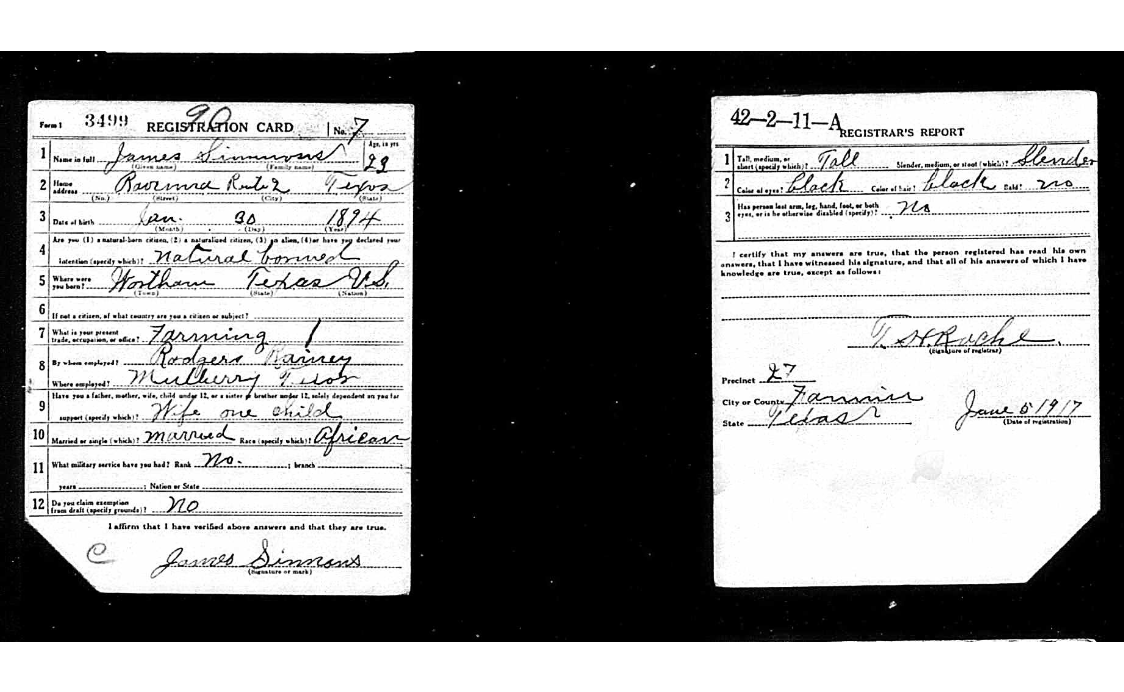 Form 1 3499 REGISTRATION CARD No. 7
90
Age, in yrs
1 Name in full James Simmons 23
(Given name) (Family name)
2 Home address Ravenna Route 2 Texas
(No.) (Street) (City) (State)
3 Date of birth Jan. 30 1894
(Month) (Day) (Year)
4 Are you (1) a natural-born citizen, (2) a naturalized citizen, (3) an alien, (4) or have you declared your
intention (specify which)? natural borned
5 Where were you born? Wortham Texas U.S.
(Town) (State) (Nation)
6 If not a citizen, of what country are you a citizen or subject?
7 What is your present trade, occupation, or office? Farming
8 By whom employed? Rodgers Rainey
Where employed? Mulberry Texas
9 Have you a father, mother, wife, child under 12, or a sister or brother under 12, solely dependent on you for
support (specify which)? Wife one child
10 Married or single (which)? married Race (specify which)? African
11 What military service have you had? Rank No. ; branch ;
years ; Nation or State
12 Do you claim exemption from draft (specify grounds)? No
I affirm that I have verified above answers and that they are true.
C James Simmons
(Signature or mark)
42-2-11-A REGISTRAR'S REPORT
1 Tall, medium, or short (specify which)? Tall Slender, medium, or stout (which)? Slender
2 Color of eyes? black Color of hair? black Bald? no
3 Has person lost arm, leg, hand, foot, or both eyes, or is he otherwise disabled (specify)? No
I certify that my answers are true, that the person registered has read his own
answers, that I have witnessed his signature, and that all of his answers of which I have
knowledge are true, except as follows:
(Signature of registrar)
Precinct 27
City or County Fannin
State Texas June 5 1917
(Date of registration)